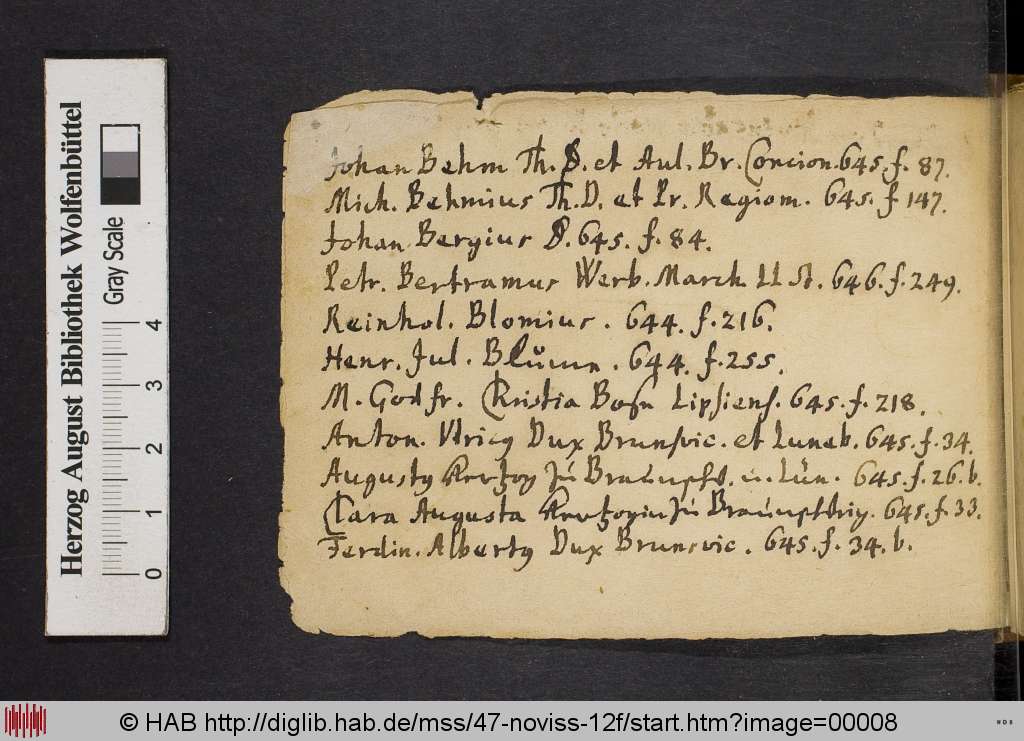 Johan Behm Th. D. et Aul. Br. Concion. 645. f. 87.
Mich. Behmius Th. D. et Pr. Regiom. 645. f 147.
Johan Bergius D. 645. f. 84.
Petr. Bertramus Werb. March. LL St. 646. f. 249.
Reinhol. Blomius. 644. f. 216.
Henr. Jul. Blŭmn. 644. f. 255.
M. Godfr. Christia Bosn Lipsiens. 645. f. 218.
Anton. Vlricq Dux Brunsvic. et Luneb. 645. f. 34.
Augustq Hertzog zŭ Braŭnsch. ŭ. Lün. 645. f. 26. b.
Clara Augusta Hertzogin zŭ Braŭnschwig. 645. f. 33.
Ferdin. Albertq Dux Brunsvic. 645. f. 34. b.
Herzog August Bibliothek Wolfenbüttel
Gray Scale
0 1 2 3 4
© HAB http://diglib.hab.de/mss/47-noviss-12f/start.htm?image=00008